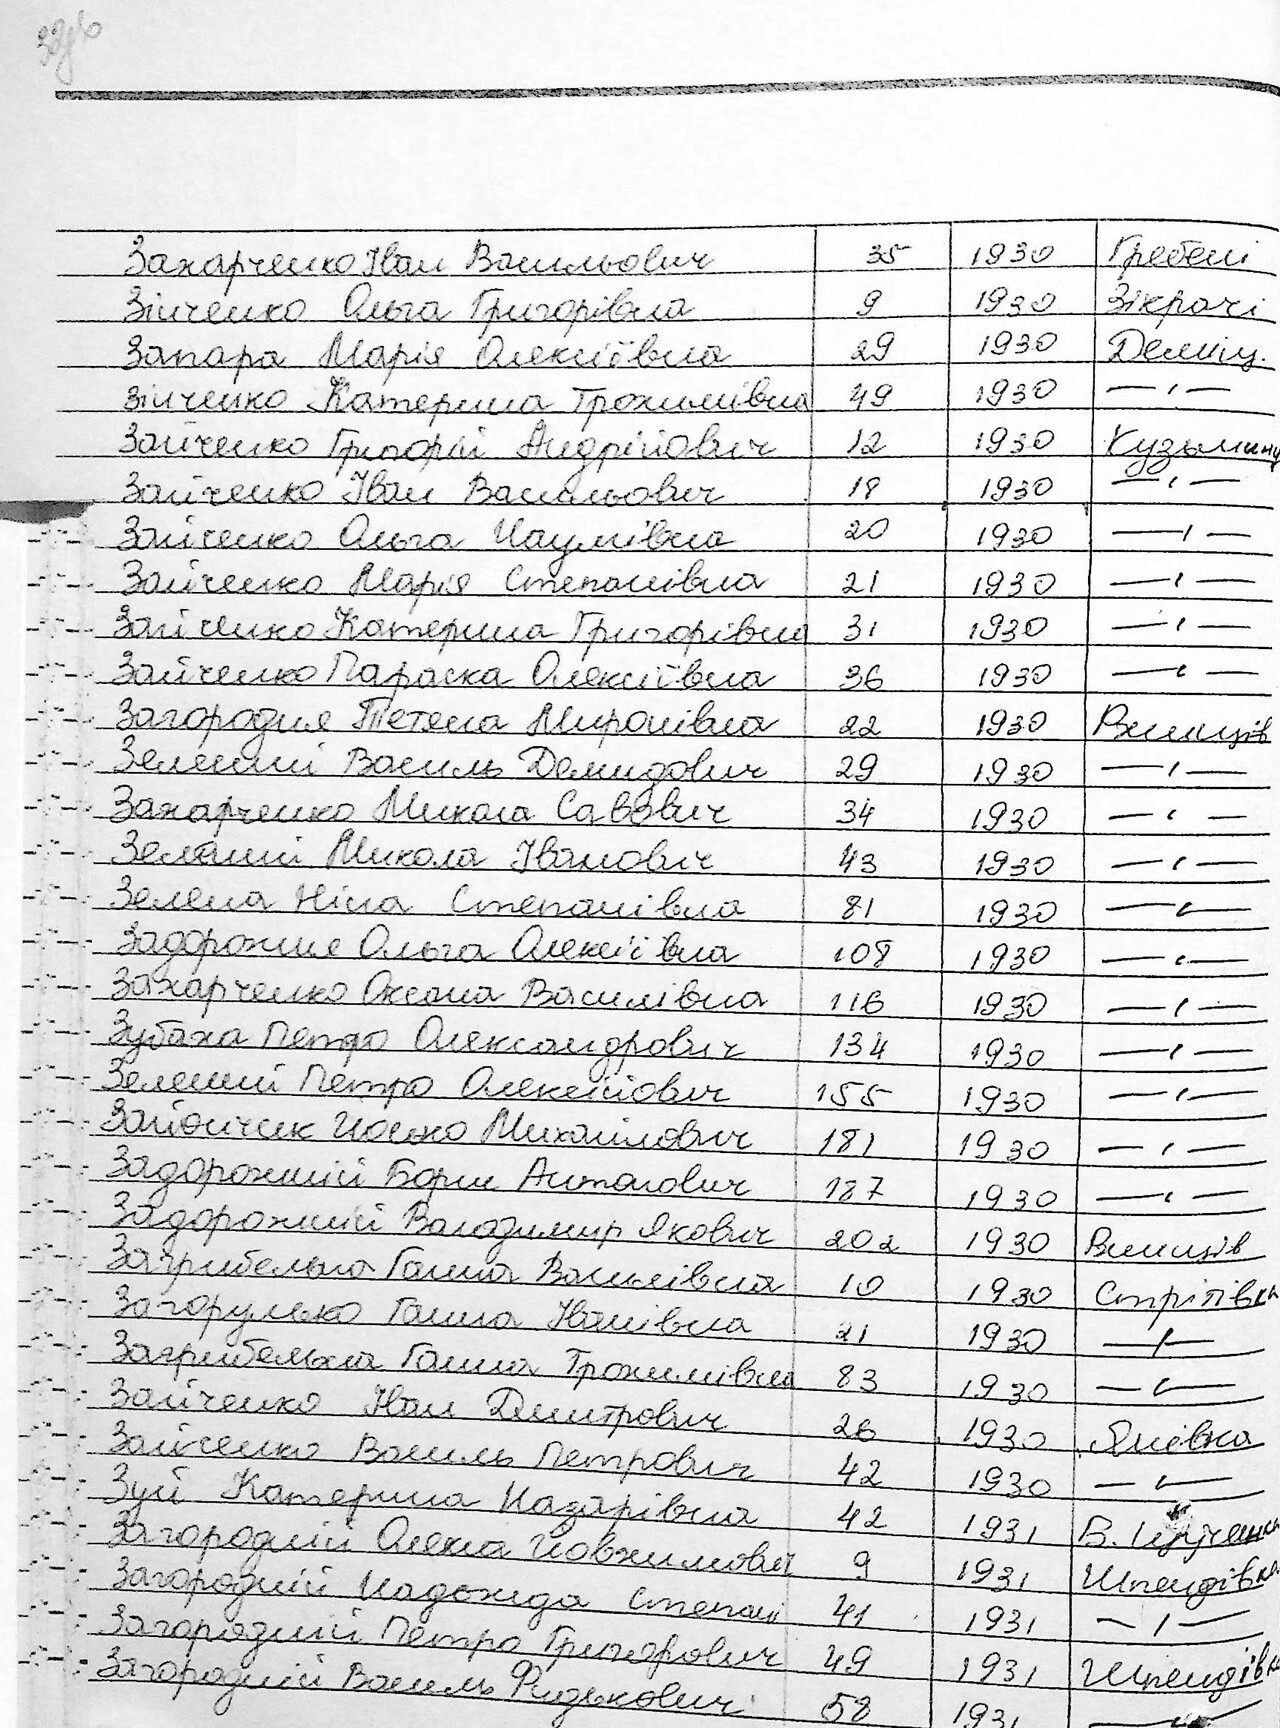 Захарченко Іван Васильович 35 1930 Гребені
Зінченко Ольга Григорівна 9 1930 Зікрачі
Запара Марія Олексіївна 29 1930 Деміщ.
Зінченко Катерина Трохимівна 49 1930 — " —
Зайченко Григорій Андрійович 12 1930 Кузьминц
Зайченко Іван Васильович 18 1930 — " —
Зайченко Ольга Наумівна 20 1930 — " —
Зайченко Марія Степанівна 21 1930 — " —
Зайченко Катерина Григорівна 31 1930 — " —
Зайченко Параска Олексіївна 36 1930 — " —
Загородня Тетяна Миронівна 22 1930 Винців
Зелений Василь Демидович 29 1930 — " —
Захарченко Микола Савович 34 1930 — " —
Зелений Микола Іванович 43 1930 — " —
Зелена Ніна Степанівна 81 1930 — " —
Задорожня Ольга Олексіївна 108 1930 — " —
Захарченко Оксана Василівна 116 1930 — " —
Зубаха Петро Олександрович 134 1930 — " —
Зелений Петро Олексійович 155 1930 — " —
Йосько Михайлович 181 1930 — " —
Задорожній Борис Антонович 187 1930 — " —
Задорожній Володимир Якович 202 1930 Винців
Загрибельна Ганна Василівна 10 1930 Стрітівка
Загорулько Ганна Іванівна 21 1930 — " —
Загрибельна Ганна Трохимівна 83 1930 — " —
Зайченко Іван Дмитрович 26 1930 Янівка
Зайченко Василь Петрович 42 1930 — " —
Зуй Катерина Назарівна 42 1931 В.
Загородній Олекса Йовхимович 9 1931 Шпендівка
Загородній Надежда Степані 41 1931 — " —
Загородній Петро Григорович 49 1931 Шпендівка
Загородній Василь Фидькович 58 1931 — " —